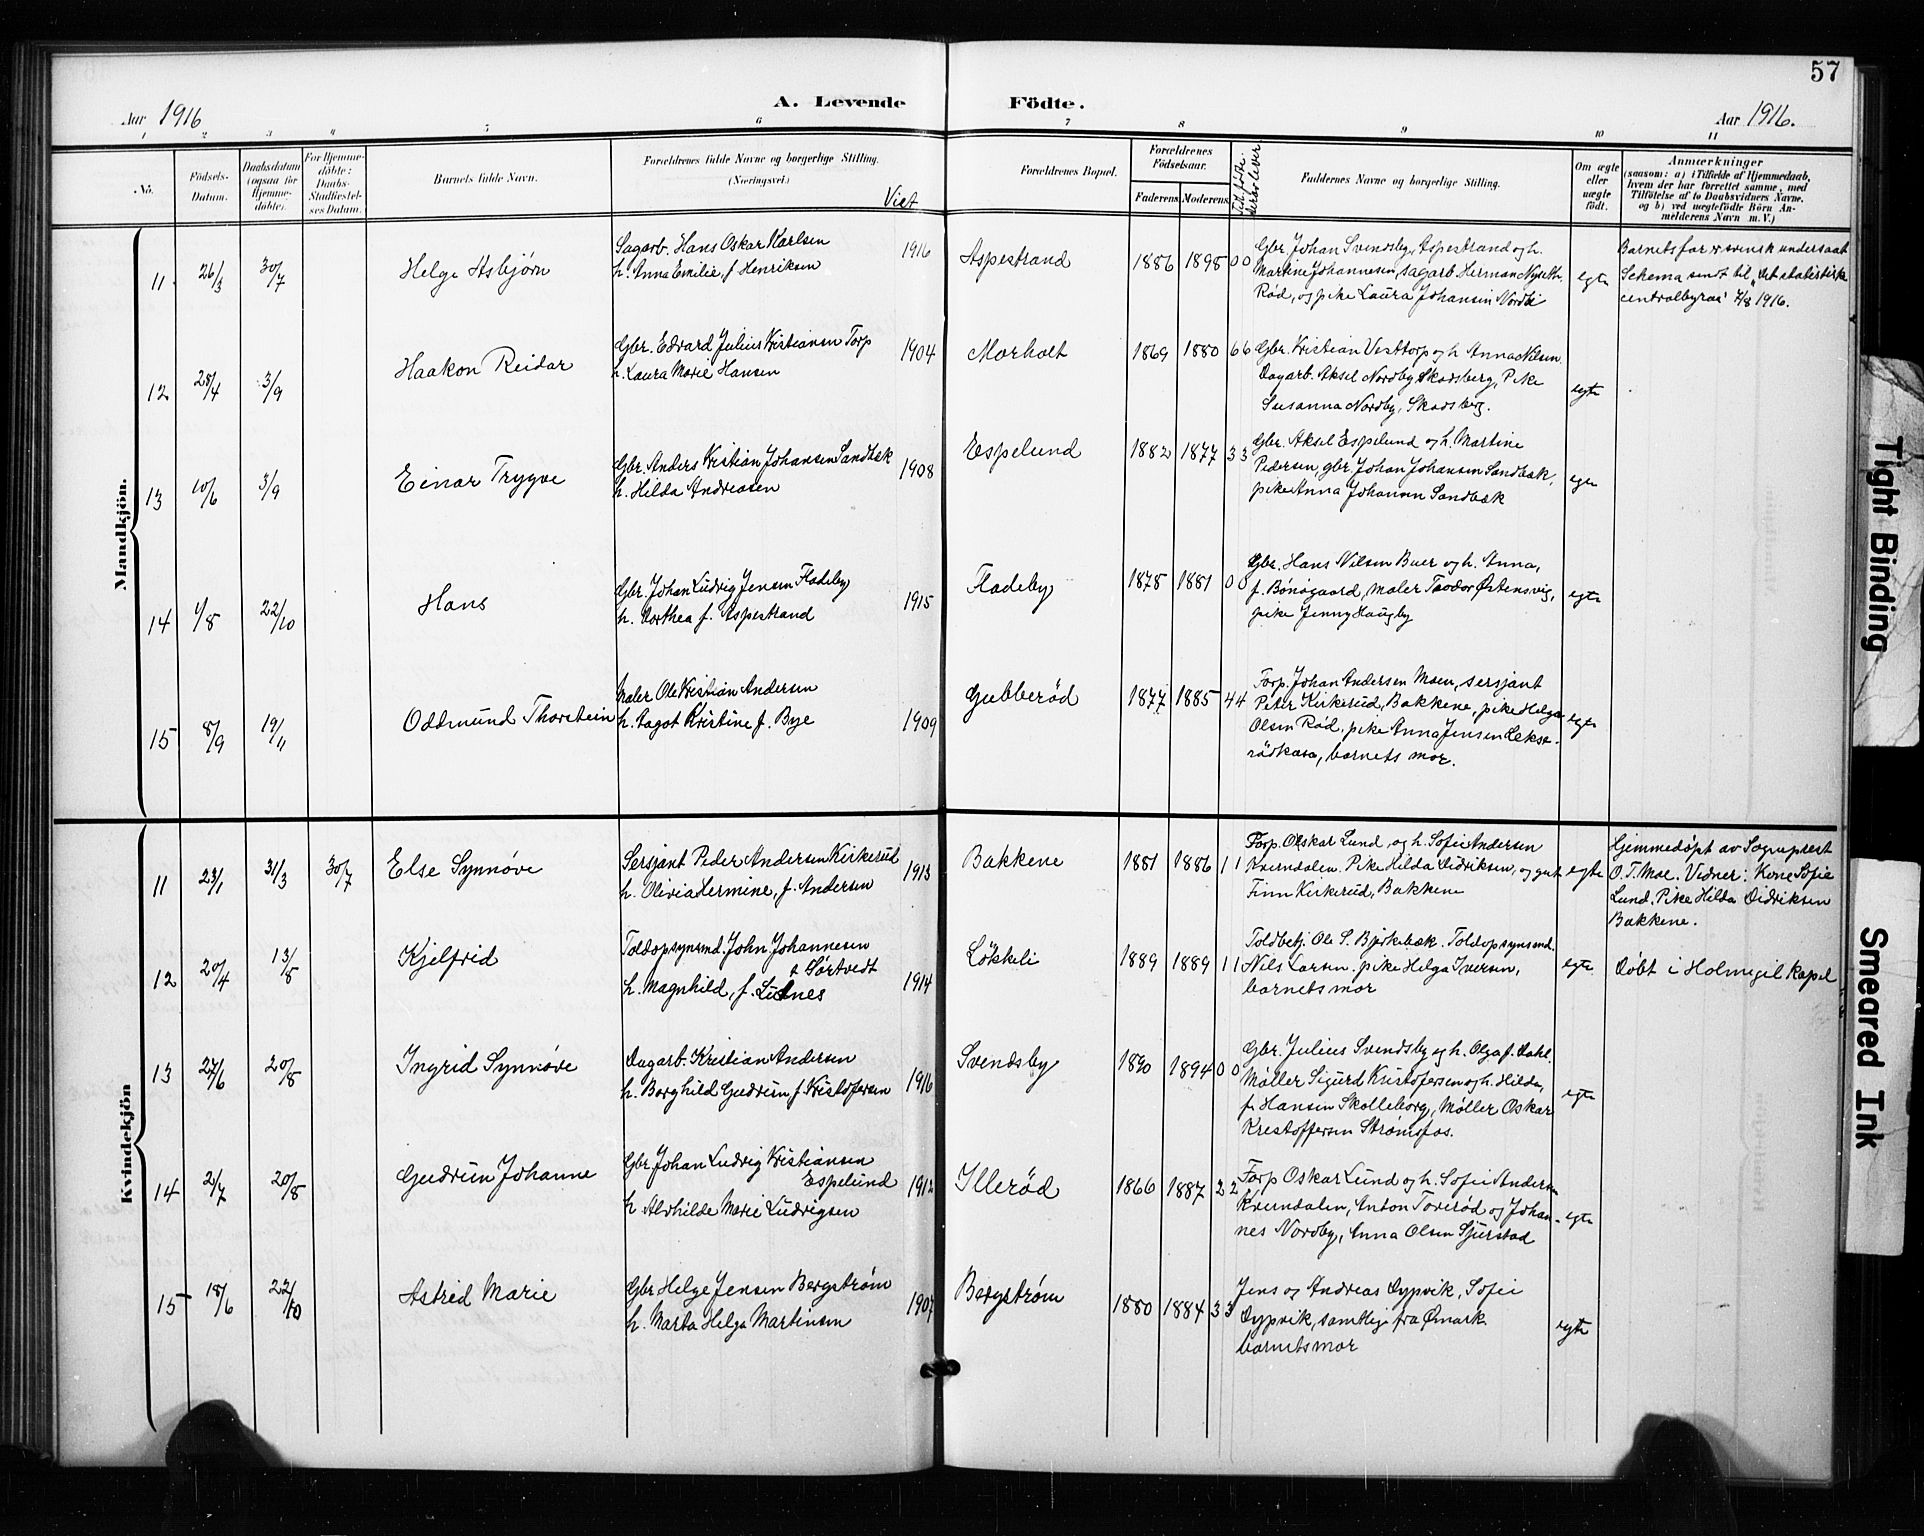 57
A. Levende Födte.
Aar 1916
Aar 1916.
1 2 3 4 5 6 7 8 9 10 11
No.
Födsels-Datum.
Daabsdatum (ogsaa for Hjemme-döbte).
For Hjemme-döbte: Daabs-Stadfæstel-ses Datum.
Barnets fulde Navn.
Forældrenes fulde Navne og borgerlige Stilling.
(Næringsvei.)
Viet
Forældrenes Bopæl.
Forældrenes Födselsaar.
Faderens Moderens
Faddernes Navne og borgerlige Stilling.
Om ægte eller uægte født.
Anmærkninger
(saasom: a) i Tilfælde af Hjemmedaab,
hvem der har forrettet samme, med
Tilföielse af to Daabsvidners Navne.
og b) ved uægtefödte Börn An-
melderens Navn m. V.)
Mandkjön.
11 26/3 30/7 Helge Asbjørn
Sagarb. Hans Oskar Karlsen
h. Anna Emilie, f Henriksen
1916 Aspestrand 1886 1898 0 0
Gbr. Johan Svendsby, Aspestrand og h.
Martine Johannesen, sagarb. Herman
Rød, og pike Laura Johansen Nordbi
egte
Barnets far er svensk undersaat
Schema sendt til "det statistiske
centralbyraa" 4/8 1916.
12 28/4 3/9 Haakon Reidar
Gbr. Edvard Julius Kristiansen Torp
h. Laura Marie Hansen
1904 Morholt 1869 1880 6 6
Gbr. Kristian Vesttorp og h Anna Nilsen.
Dagarb. Aksel Nordby Skodsberg, Pike
Susanna Nordby, Skodsberg.
egte
13 10/6 3/9 Einar Trygve
Gbr. Anders Kristian Johansen Sandbæk
h. Hilda Andreasen
1908 Espelund 1882 1877 3 3
Gbr. Aksel Espelund og h. Martine
Pedersen, gbr. Johan Johansen Sandbæk,
pike Anna Johansen Sandbæk
egte
14 1/8 22/10 Hans
Gbr. Johan Ludvig Jensen Fladeby
h. Dorthea f. Aspestrand
1915 Fladeby 1878 1881 0 0
Gbr. Hans Nilsen Buer og h. Anna,
f. Bønøgaard, maler Teodor Østensvig,
pike Jenny Haugby
egte
15 8/9 19/11 Oddmund Thorstein
Maler Ole Kristian Andersen
h. Dagot Kristine f. Bye
1909 Gubberød 1877 1885 4 4
Forp. Johan Andersen Moen, sersjant
Peter Kirkerud, Bakkene, pike Helga
Olsen Rød, pike Anna Jensen Lekse-
rødkasa, barnets mor.
egte
Kvindekjön
11 23/1 31/3 30/7 Else Synnøve
Sersjant Peder Andersen Kirkerud
h. Olivia Hermine, f. Andersen
1913 Bakkene 1881 1886 1 1
Forp. Oskar Lund, og h. Sofie Andersen
Kverndalen. Pike Hilda Didriksen, og gut
Finn Kirkerud, Bakkene
egte
Hjemmedøpt av Sogneprest
O. T. Moe. Vidner: Kone Sofie
Lund. Pike Hilda Didriksen
Bakkene.
12 20/4 13/8 Kjelfrid
Toldopsynsmd. John Johannesen
Sørtvedt
h. Magnhild, f. Lutnes
1914 Løkkeli 1889 1889 1 1
Toldbetj. Ole S. Bjerkebæk. Toldopsynsmd.
Nils Larsen. pike Helga Iversen,
barnets mor
egte
Døbt i Holmegil kapel
13 27/6 20/8 Ingrid Synnøve
Dagarb. Kristian Andersen
h. Borghild Gudrun f. Kristofersen
1916 Svendsby 1890 1894 0 0
Gbr. Julius Svendsby og h. Olga f. Dahl.
Møller Sigurd Kristofersen og h. Hilda,
f. Hansen Skolleborg, Møller Oskar
Kristoffersen Strømsfos.
egte
14 2/7 20/8 Gudrun Johanne
Gbr. Johan Ludvig Kristiansen
Espelund
h. Alvhilde Marie Ludvigsen
1912 Illerød 1866 1887 2 2
Forp Oskar Lund og h. Sofie Andersen
Kverndalen, Anton Toverød og Johan-
nes Nordby, Anna Olsen Sjurstad
egte
15 18/6 22/10 Astrid Marie
Gbr Helge Jensen Bergstrøm
h. Marta Helga Martinsen
1907 Bergstrøm 1880 1884 3 3
Jens og Andreas Dypvik, Sofie
Dypvik, samtlige fra Ømark
barnets mor
egte
Tight Binding
Smeared Ink